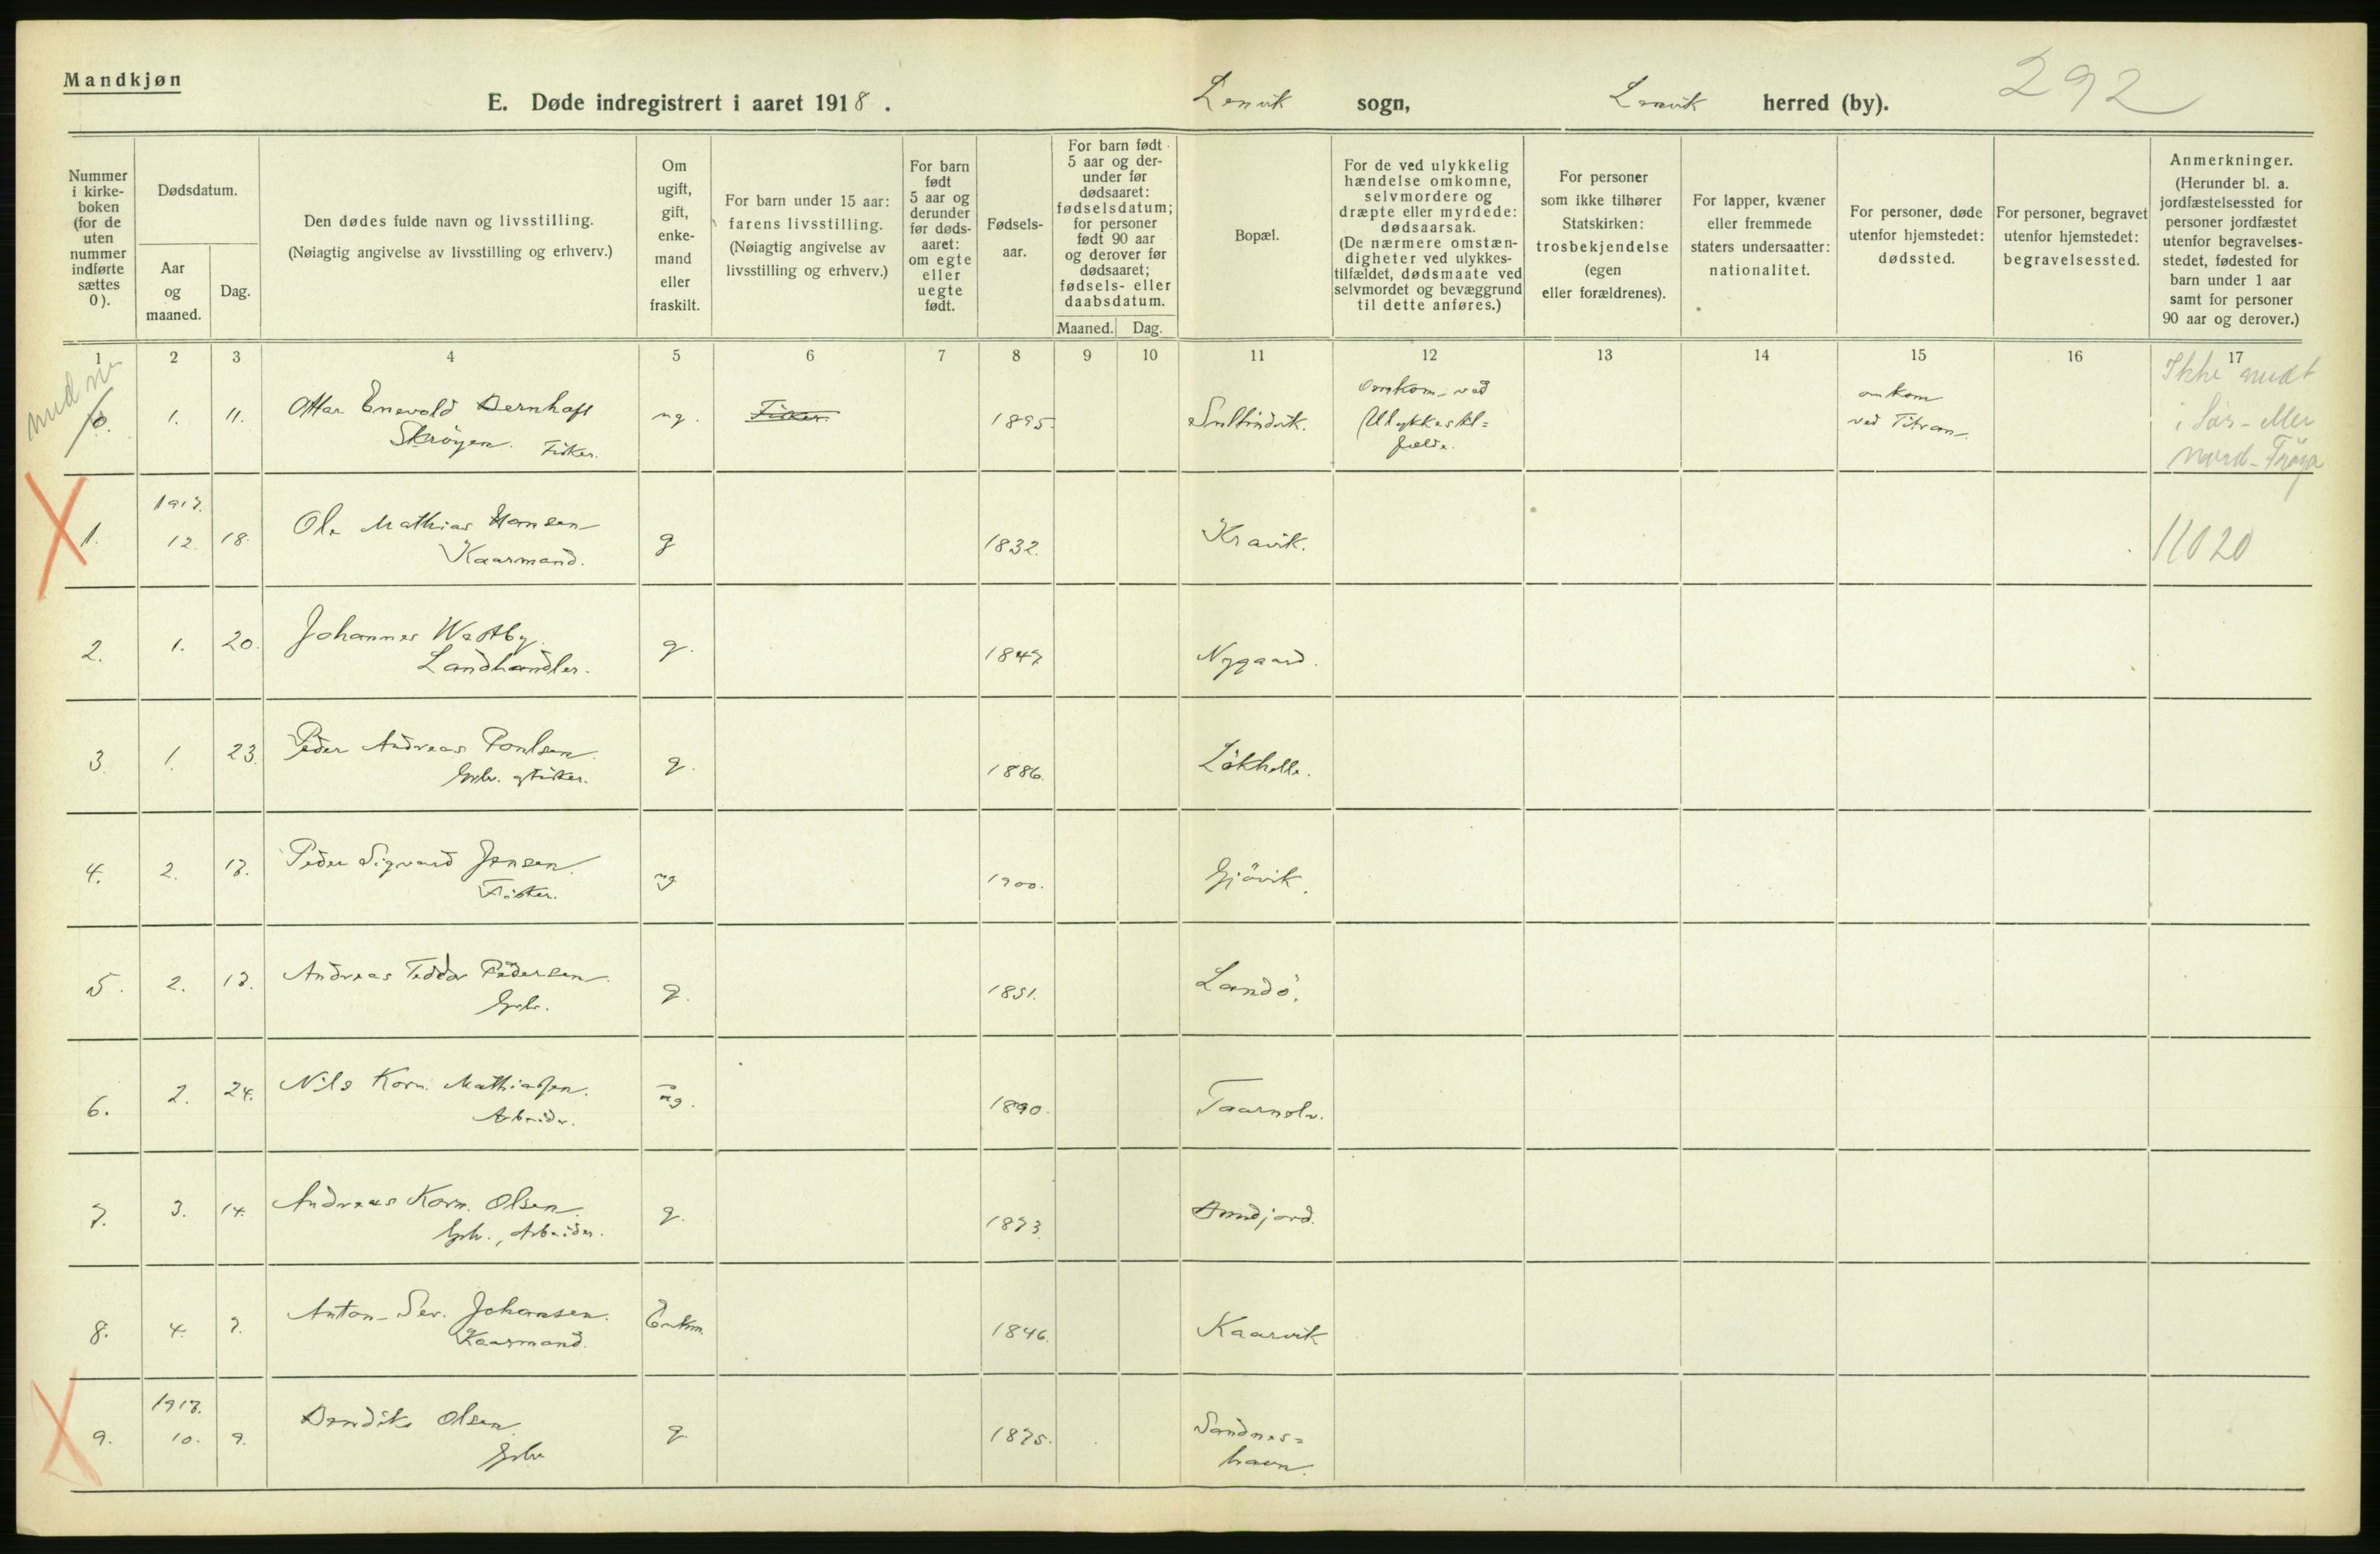 Mandkjøn
E. Døde indregistrert i aaret 1918.
Lenvik sogn,
Lenvik herred (by).
292
Nummer i kirke-boken (for de uten nummer indførte sættes 0).
Dødsdatum.
Aar og maaned.
Dag.
Den dødes fulde navn og livsstilling.
(Nøiagtig angivelse av livsstilling og erhverv.)
Om ugift, gift, enke-mand eller fraskilt.
For barn under 15 aar: farens livsstilling.
(Nøiagtig angivelse av livsstilling og erhverv.)
For barn født 5 aar og derunder før døds-aaret: om egte eller uegte født.
Fødsels-aar.
For barn født 5 aar og der-under før dødsaaret: fødselsdatum; for personer født 90 aar og derover før dødsaaret; fødsels- eller daabsdatum.
Maaned. Dag.
Bopæl.
For de ved ulykkelig hændelse omkomne, selvmordere og dræpte eller myrdede: dødsaarsak.
(De nærmere omstæn-digheter ved ulykkes-tilfældet, dødsmaate ved selvmordet og bevæggrund til dette anføres.)
For personer som ikke tilhører Statskirken: trosbekjendelse (egen eller forældrenes).
For lapper, kvæner eller fremmede staters undersaatter: nationalitet.
For personer, døde utenfor hjemstedet: dødssted.
For personer, begravet utenfor hjemstedet: begravelsessted.
Anmerkninger.
(Herunder bl. a. jordfæstelsessted for personer jordfæstet utenfor begravelses-stedet, fødested for barn under 1 aar samt for personer 90 aar og derover.)
1 2 3 4 5 6 7 8 9 10 11 12 13 14 15 16 17
0. 1. 11. Ottar Enevold Bernhoft ug. Fisker. 1895. omkom ved omkom Ikke medt
Skrøyen. Fisker. Ulykkestil= ved Titran. i Sør- eller
fælde. nord-Frøya
1917.
1. 12. 18. Ole Mathias Hansen g 1832. Kravik. 11020
Kaarmand.
2. 1. 20. Johannes Westby. g. 1847 Nygaard.
Landhandler.
3. 1. 23. Peder Andreas Poulsen. g. 1886. Løkhelle.
Grbr. og Fisker.
4. 2. 17. Peder Sigvard Jensen. ug 1900. Gjøvik.
Fisker.
5. 2. 17. Andreas Pedersen. g. 1851. Landø.
Grbr.
6. 2. 24. Nils Korn. Mathiassen. ug. 1890. Taarnelv.
Arbeider.
7. 3. 14. Andreas Korn. Olsen. g. 1873.
Grbr., Arbeider.
8. 4. 7. Anton Sev. Johansen. Enkm. 1846. Kaarvik
Kaarmand.
1917.
9. 10. 9. Bendiks Olsen. g. 1875. Sandnes=
Grbr havn.